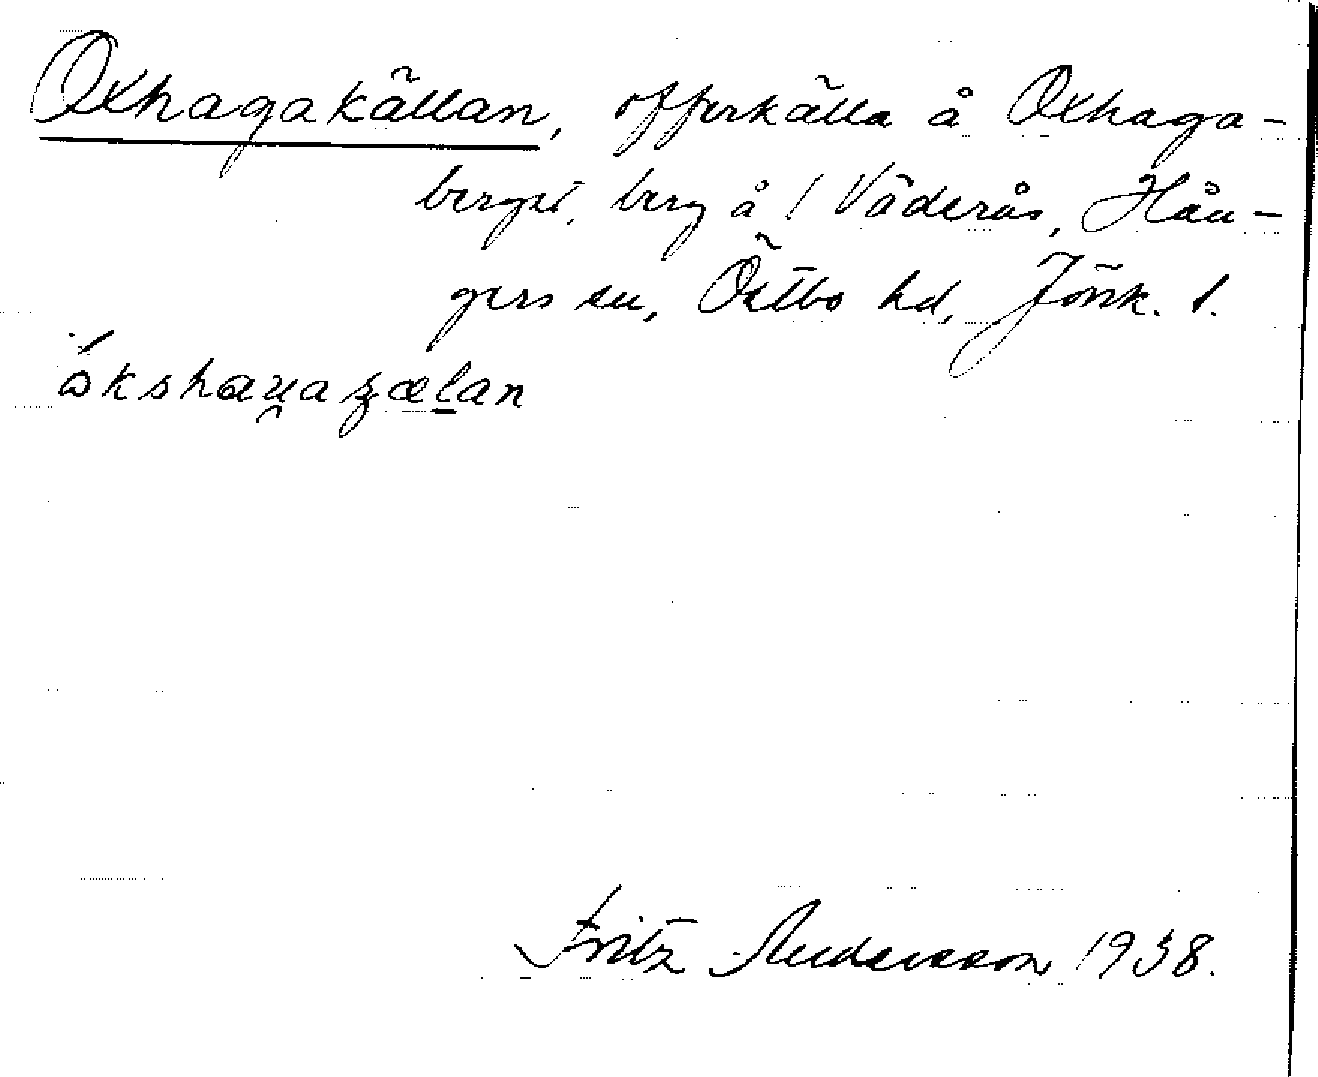 Oxhagakällan, offerkälla å Oxhaga-
berget, berg å 1 Väderås, Hån-
gers sn, Östbo hd, Jönk. l.
Fritz Andersson 1938.